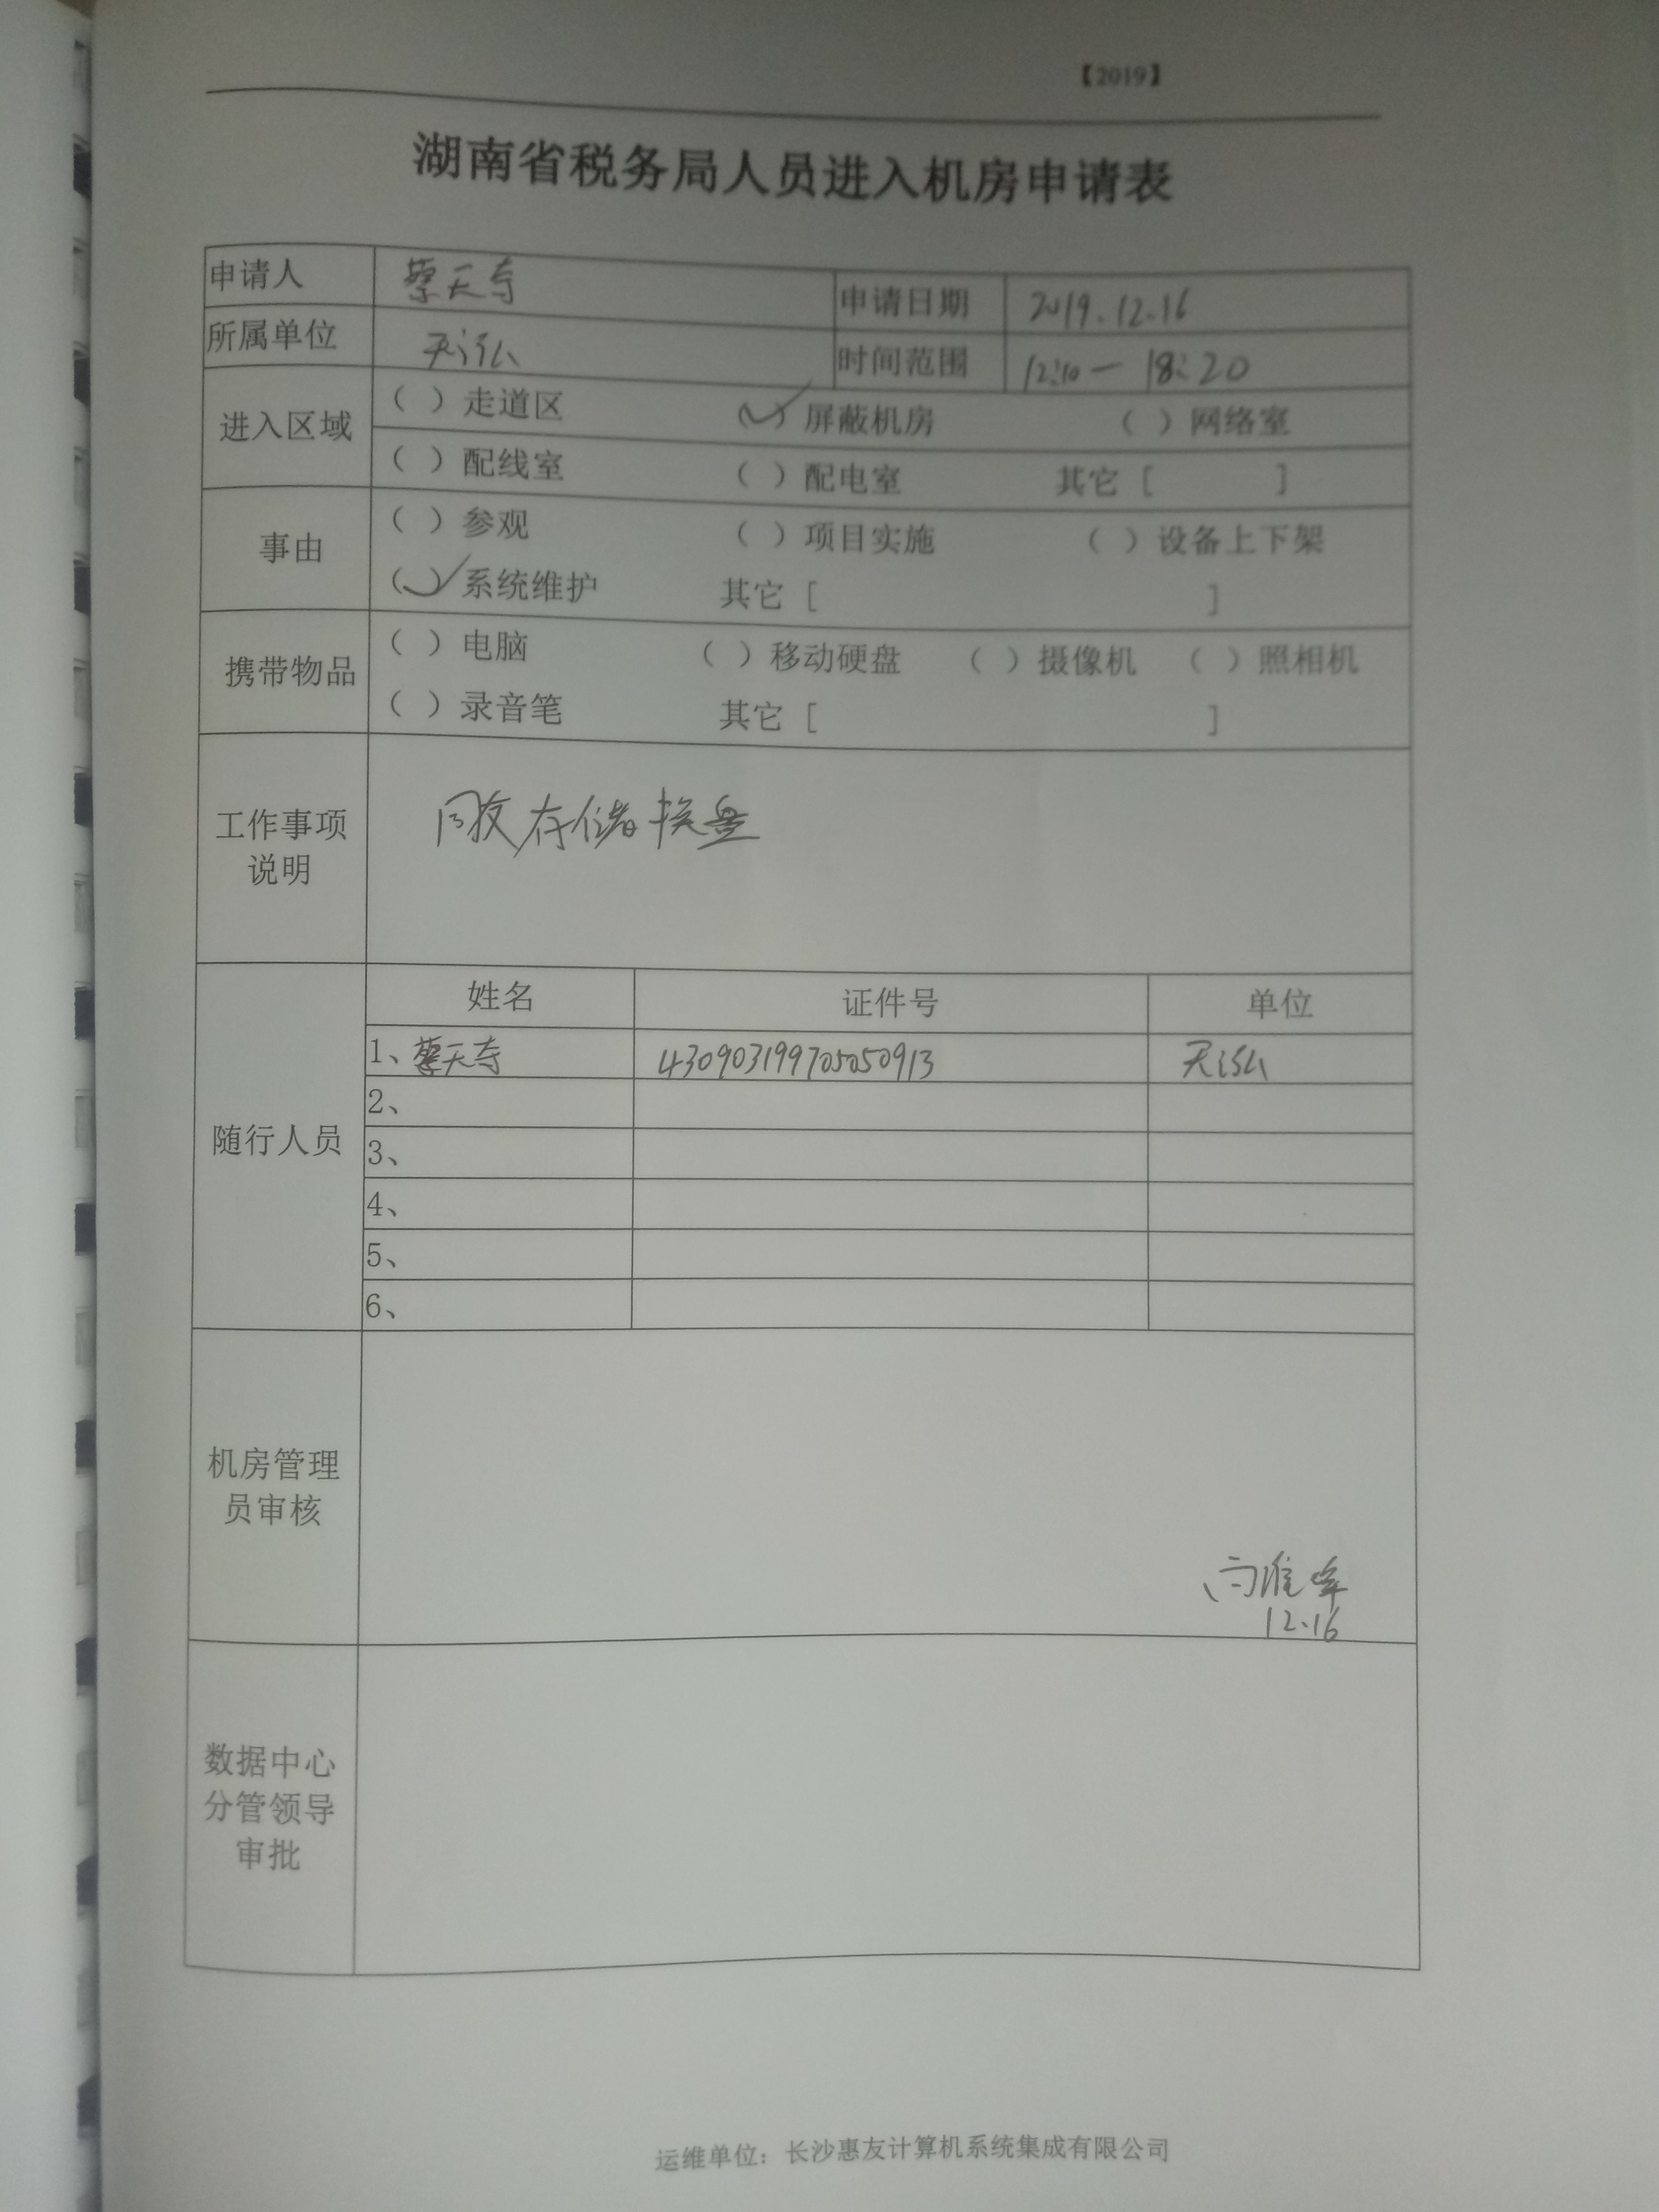 【2019】
湖南省税务局人员进入机房申请表
申请人 蔡天寺 申请日期 2019.12.16
所属单位 天泓 时间范围 12:10 — 18:20
进入区域 ( ) 走道区 (✓) 屏蔽机房 ( ) 网络室
( ) 配线室 ( ) 配电室 其它 [ ]
事由 ( ) 参观 ( ) 项目实施 ( ) 设备上下架
(✓) 系统维护 其它 [ ]
携带物品 ( ) 电脑 ( ) 移动硬盘 ( ) 摄像机 ( ) 照相机
( ) 录音笔 其它 [ ]
工作事项
说明
同友存储换盘
随行人员
姓名 证件号 单位
1、蔡天寺 430903199705050913 天泓
2、
3、
4、
5、
6、
机房管理
员审核
12.16
数据中心
分管领导
审批
运维单位：长沙惠友计算机系统集成有限公司